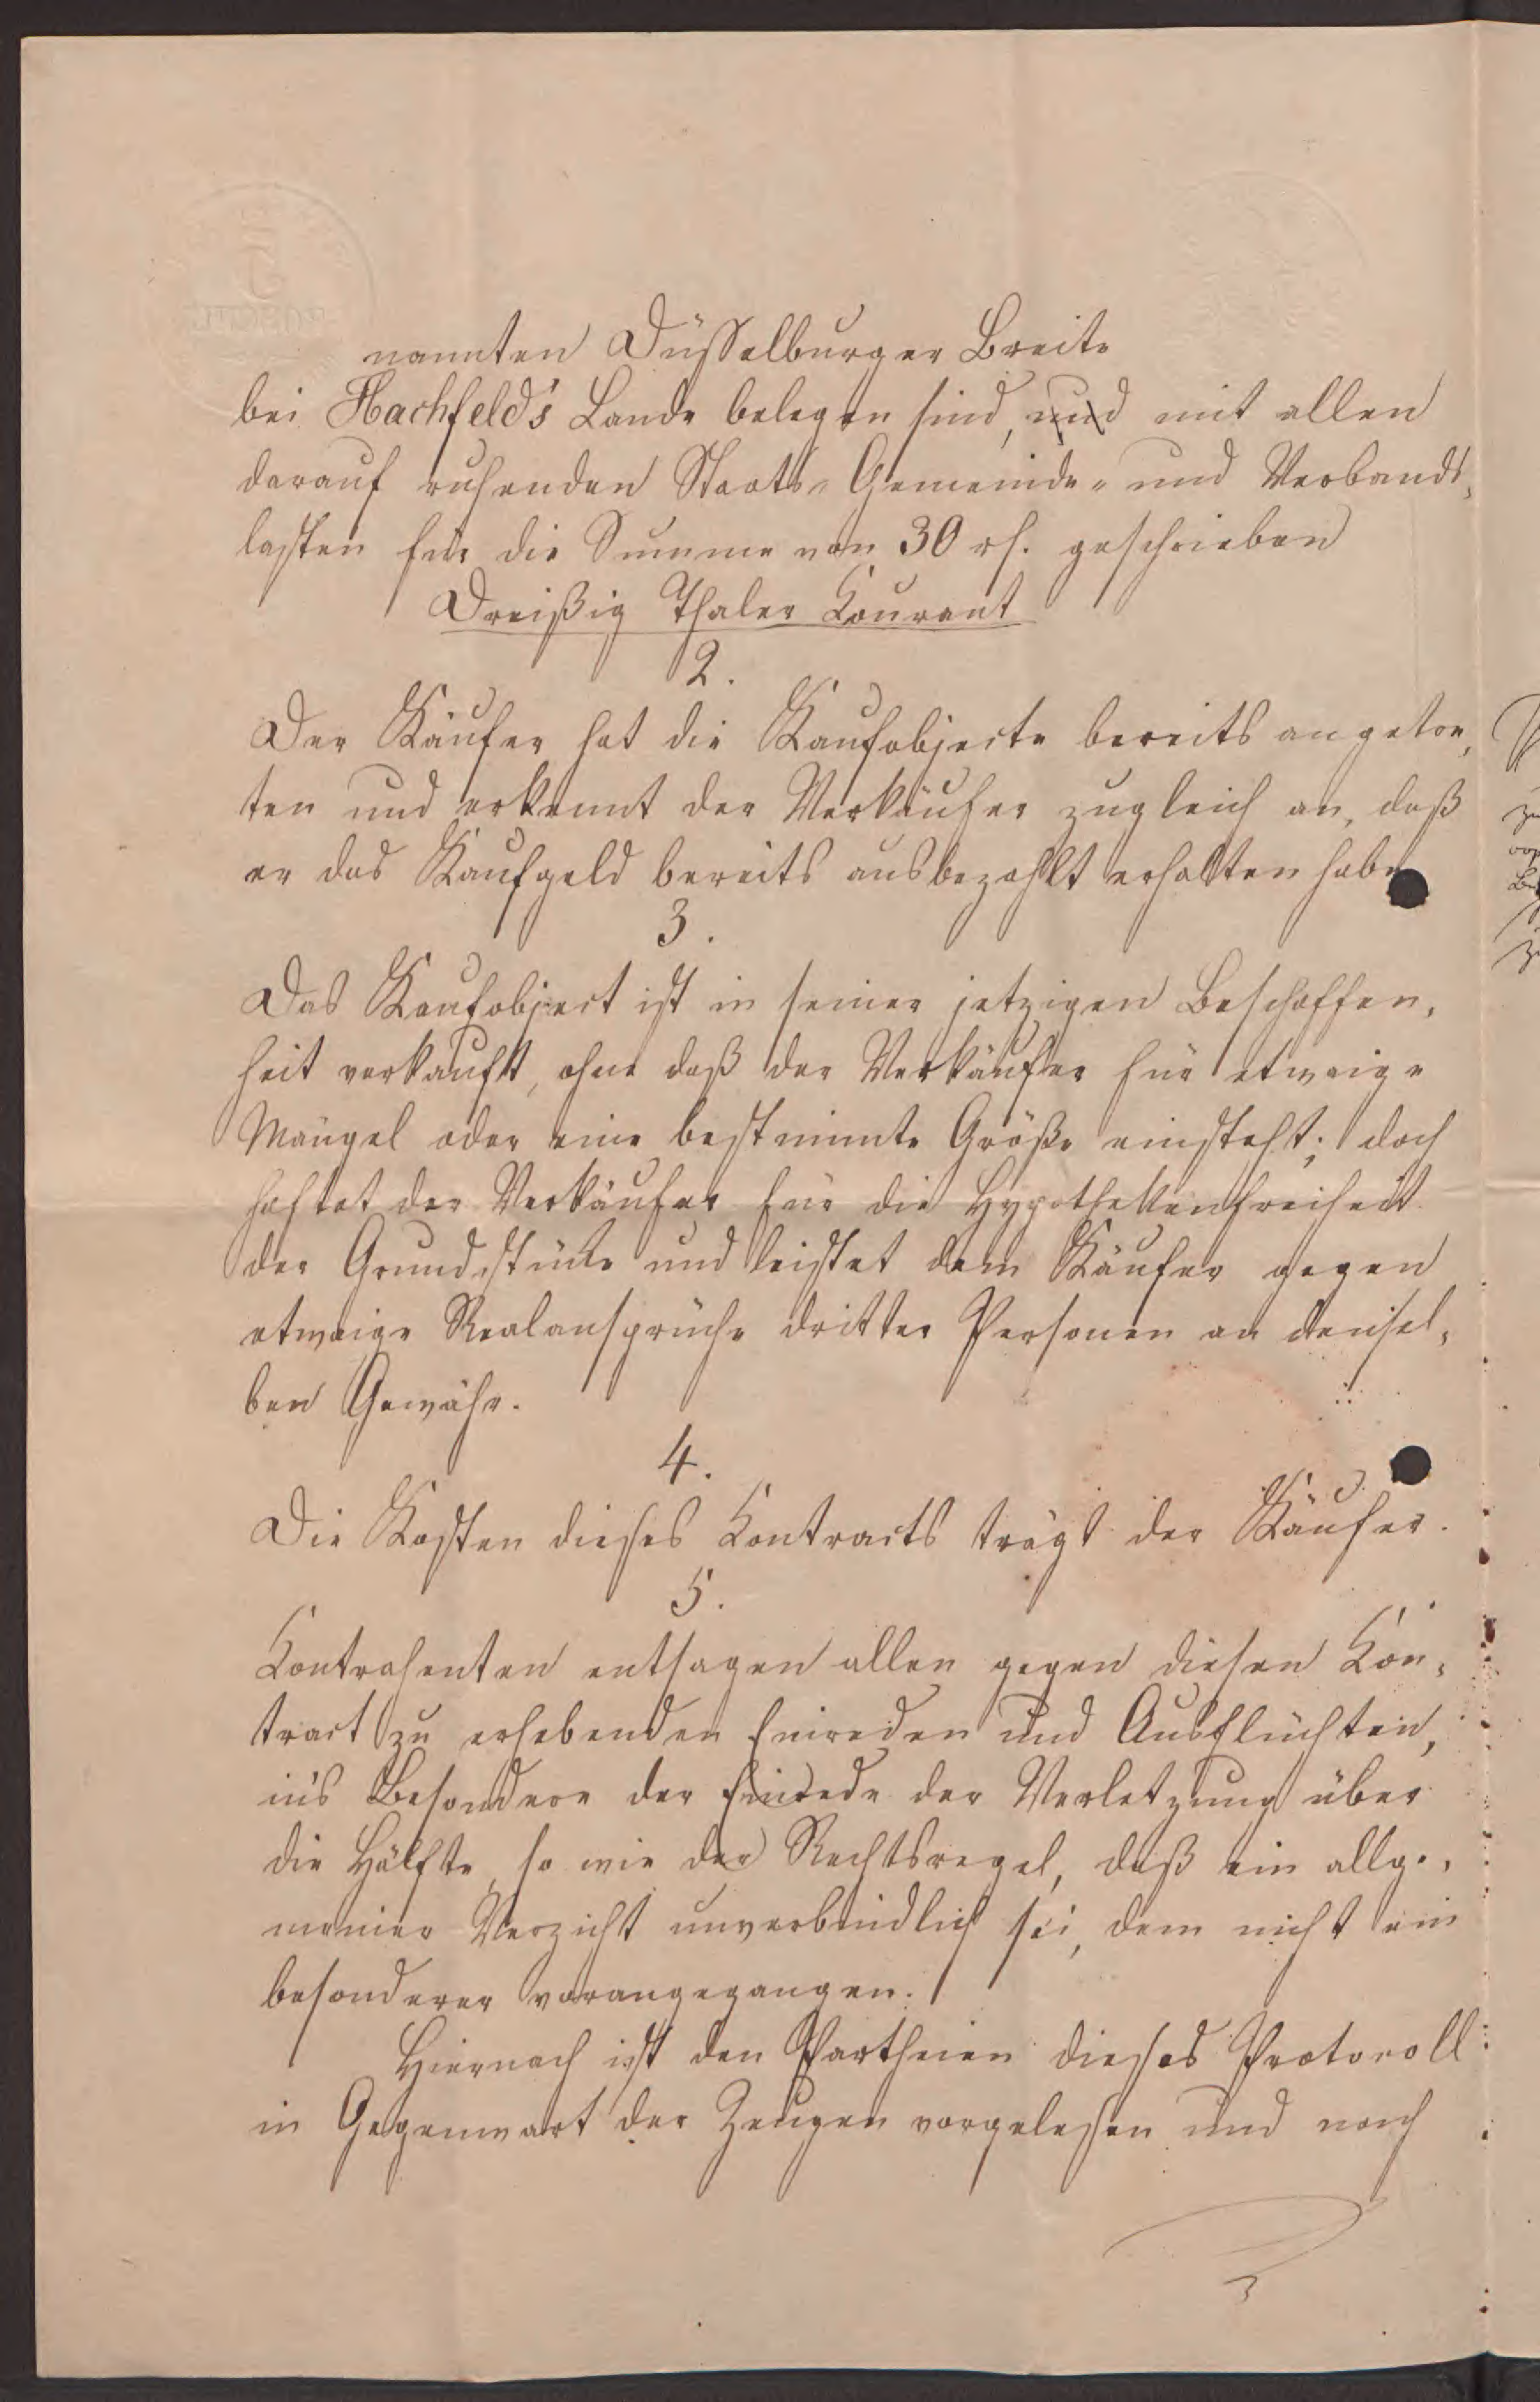 nannten Düsselburger Breite
bei Hachfeld's Lande belegen sind, und mit allen
darauf ruhenden Staats-Gemeinde- und Verbands-
lasten für die Summe von 30 rh. geschrieben
Dreißig Thaler Courant
2.
Der Käufer hat die Kaufobjecte bereits angetre-
ten und erkennt der Verkäufer zugleich an, daß
er das Kaufgeld bereits ausbezahlt erhalten habe
3.
Das Kaufobject ist in seiner jetzigen Beschaffen-
heit verkauft, ohne daß der Verkäufer für etwaige
Mängel oder eine bestimmte Größe einsteht; doch
haftet der Verkäufer für die Hypothekenfreiheit
der Grundstücke und leistet dem Käufer gegen
etwaige Realansprüche dritter Personen an densel-
ben Gewähr.
4.
Die Kosten dieses Contracts trägt der Käufer.
5.
Contrahenten entsagen allen gegen diesen Con-
tract zu erhebenden Einreden und Ausflüchten,
in's Besondere der Einrede der Verletzung über
die Hälfte, so wie der Rechtsregel, daß ein allge-
meiner Verzicht unverbindlich sei, dem nicht ein
besonderer vorangegangen.
Hiernach ist den Partheien dieses Protocoll
in Gegenwart der Zeugen vorgelesen und nach